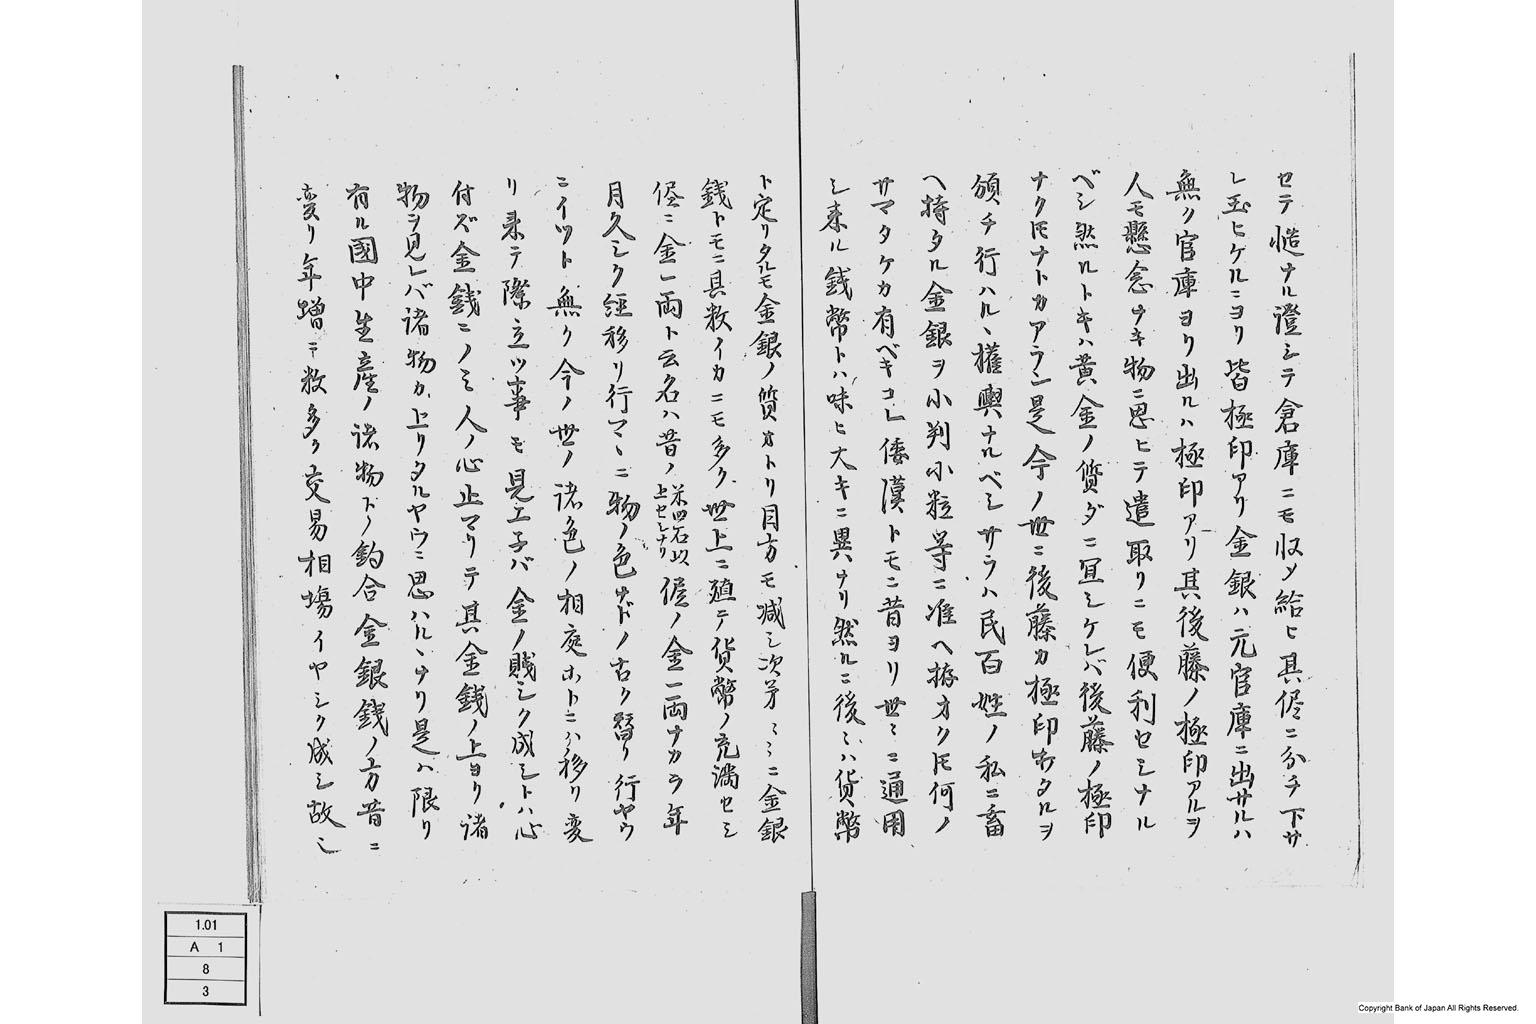 セテ慥ナル證シテ倉庫ニモ収メ給ヒ其侭ニ分チ下サ
レ玉ヒケルニヨリ皆極印アリ金銀ハ元官庫ニ出サルハ
無ク官庫ヨリ出ルハ極印アリ其後藤ノ極印アルヲ
人モ懸念ナキ物ニ思ヒテ遣取リニモ便利セシナル
ベシ然ルトキハ黄金ノ質ダニ冝シケレバ後藤ノ極印
ナク𪜈ナトカアラン是今ノ世ニ後藤カ極印打タルヲ
頒チ行ハルヽ權輿ナルベシサラハ民百姓ノ私ニ畜
ヘ持タル金銀ヲ小判小粒等ニ准ヘ捺オク𪜈何ノ
サマタケカ有ベキコレ倭漢トモニ昔ヨリ世ミニ通用
シ来ル銭幣トハ味ヒ大キニ異ナリ然ルニ後ミハ貨幣
ト定リタルモ金銀ノ質オトリ目方モ减シ次第ミミニ金銀
銭トモニ具数イカニモ多ク世上ニ殖テ貨幣ノ充満セシ
侭ニ金一両ト云名ハ昔ノ米四石以上セシナリ侭ノ金一両ナカラ年
月久シク経移リ行マヽニ物ノ色ナドノ古ク替リ行ヤウ
ニイツト無ク今ノ世ノ諸色ノ相庭ホトニハ移リ変
リ来テ際立ツ事モ見エ子バ金ノ賎シク成シトハ心
付ズ金銭ニノミ人ノ心止マリテ其金銭ノ上ヨリ諸
物ヲ見レバ諸物カ上リタルヤウニ思ハルヽナリ是ハ限リ
有ル國中生産ノ諸物ト釣合金銀銭ノ方昔ニ
変リ年増ニ数多ク交易相塲イヤシク成シ故ニ
1.01
A 1
8
3
Copyright Bank of Japan All Rights Reserved.